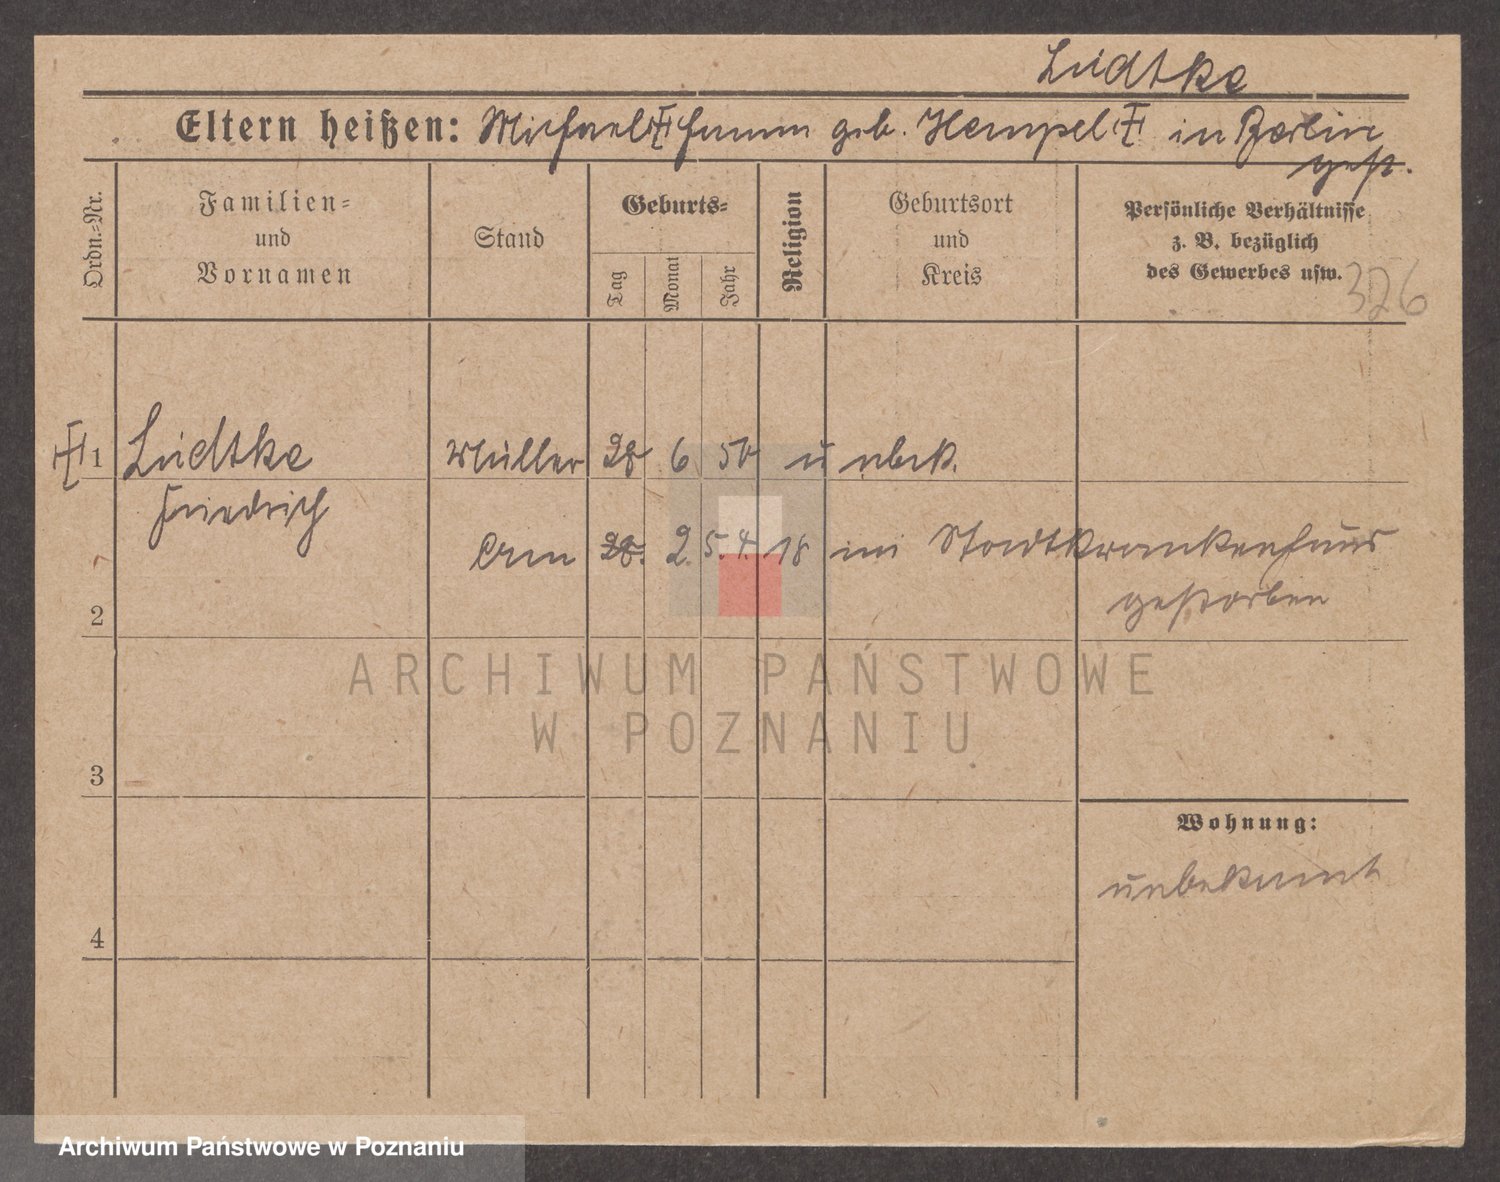 Lüdtke
Eltern heißen: Michael geb. Hempel in Berlin
gest.
Ordn.-Nr.
Familien-
und
Vornamen
Stand
Geburts-
Tag
Monat
Jahr
Religion
Geburtsort
und
Kreis
Persönliche Verhältnisse
z. B. bezüglich
des Gewerbes usw.
326
1 Lüdtke Müller 28 6 50 u unbek.
Friedrich
am 28. 2. 5. 4. 18 im Stadtkrankenhaus
gestorben
2
ARCHIWUM PAŃSTWOWE
W POZNANIU
3
Wohnung:
unbekannt
4
Archiwum Państwowe w Poznaniu